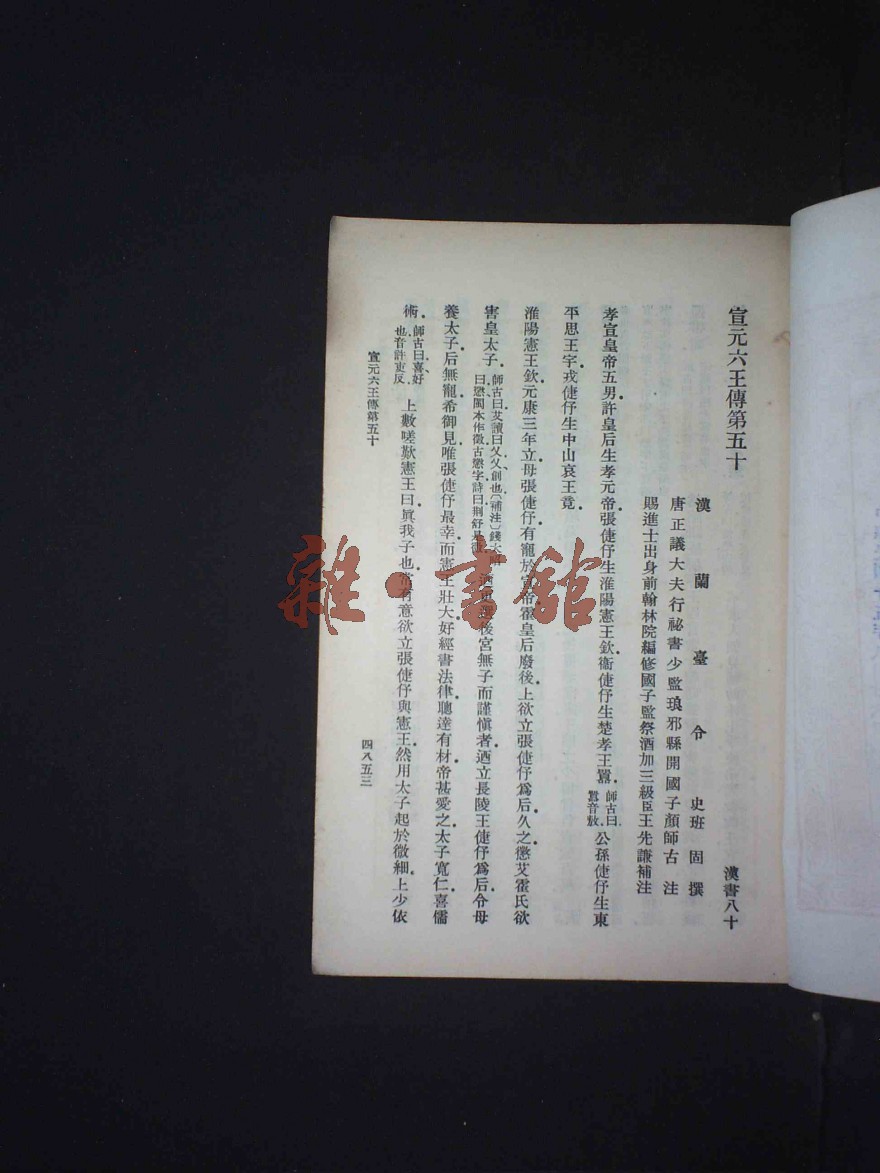 宣元六王傳第五十
漢書八十
漢蘭臺令史班固撰
唐正議大夫行祕書少監琅邪縣開國子顏師古注
賜進士出身前翰林院編修國子監祭酒加三級臣王先謙補注
孝宣皇帝五男許皇后生孝元帝張倢伃生淮陽憲王欽衞倢伃生楚孝王囂師古曰囂音敖公孫倢伃生東
平思王宇戎倢伃生中山哀王竟
淮陽憲王欽元康三年立母張倢伃有寵於宣帝霍皇后廢後上欲立張倢伃爲后久之懲艾霍氏欲
害皇太子師古曰艾讀曰乂乂創也〔補注〕錢大昭曰懲閩本作徵古懲字詩曰荆舒是迺更選後宮無子而謹愼者迺立長陵王倢伃爲后令母
養太子后無寵希御見唯張倢伃最幸而憲王壯大好經書法律聰達有材帝甚愛之太子寬仁喜儒
術師古曰喜好也音許吏反上數嗟歎憲王曰眞我子也常有意欲立張倢伃與憲王然用太子起於微細上少依
宣元六王傳第五十
四八五三
雜·書館